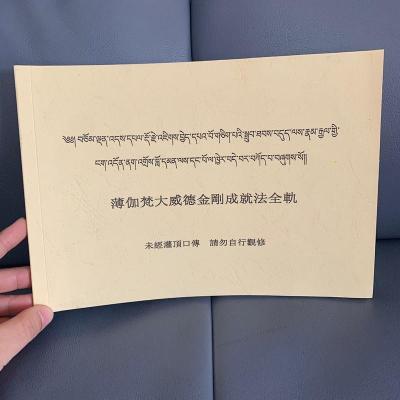 ༄༅༅། །བཅོམ་ལྡན་འདས་དཔལ་རྡོ་རྗེ་འཇིགས་བྱེད་དཔའ་བོ་གཅིག་པའི་སྒྲུབ་ཐབས་བདུད་ལས་རྣམ་རྒྱལ་གྱི་
ངག་འདོན་ནག་འགྲོས་བློ་དམན་ལས་དང་པོ་ལ་ཁྱེར་བདེ་བར་བཀོད་པ་བཞུགས་སོ།།
薄伽梵大威德金剛成就法全軌
未經灌頂口傳 請勿自行觀修